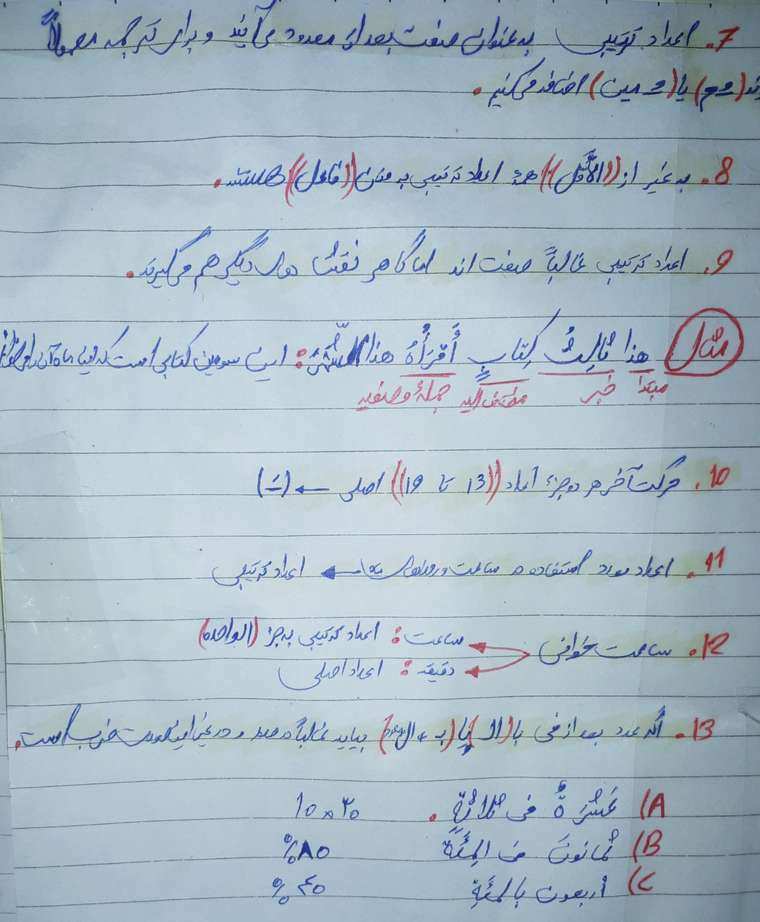 7. اعداد ترتیبی به عنوان صفت بعد از معدود می‌آیند و برای ترجمه معمولاً
(ـُ م) یا (ـُ مین) اضافه می‌کنیم.
8. به غیر از ((الأوّل)) همهٔ اعداد ترتیبی بر وزن ((فاعل)) هستند.
9. اعداد ترتیبی غالباً صفت اند اما گاهی نقش های دیگر هم می‌گیرند.
مثال هذا ثالِثُ کِتابٍ أَقرَأُهُ هذا الشَّهرَ: این سومین کتابی است که این ماه آن را
مبتدا خبر مضاف الیه جملهٔ وصفیه
10. حرکت آخر هر دو جزء اعداد ((13 تا 19)) اصلی ← (ـَ)
11. اعداد مورد استفاده در ساعت و روزهای ماه ← اعداد ترتیبی
12. ساعت خوانی
ساعت: اعداد ترتیبی به جز (الواحدة)
دقیقه: اعداد اصلی
13. اگر عدد بعد از فی با (الـ) یا (بـ + الـ) بیاید غالباً درصد و در غیر اینصورت ضرب است.
A) عَشَرَةٌ فی ثَلاثَةٍ. ۱۰×۳۰
B) ثمانونَ فی المِئَةِ %۸۰
C) أربعون بالمئَةِ %۴۰